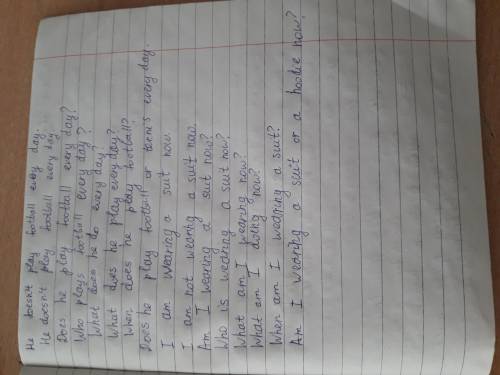 He doesn't play football every day.
He doesn't play football every day
Does he play football every day?
Who plays football every day?
What does he do every day?
What does he play every day?
When does he play football?
Does he play football or tennis every day.
I am wearing a suit now.
I am not wearing a suit now.
Am I wearing a suit now?
Who is wearing a suit now?
What am I wearing now?
What am I doing now?
When am I wearing a suit?
Am I wearing a suit or a hoodie now?